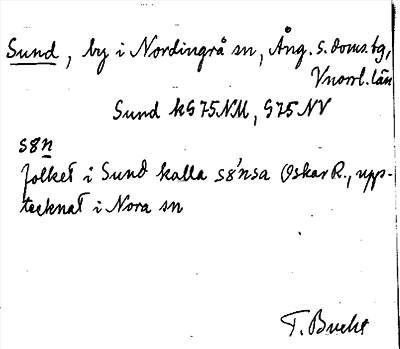 Sund, by i Nordingrå sn, Ång. s. doms. bg,
Vnorrl. län
Sund kG75NM, G75NV
s8n
folket i Sund kalla s8'nsa Oskar R., upp-
tecknat i Nora sn
T. Bucht